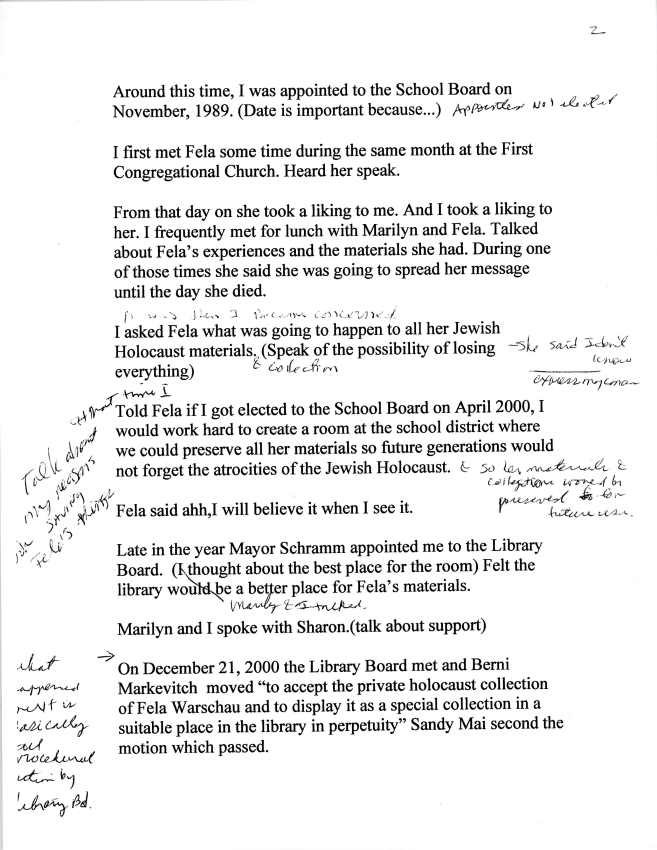 2
Around this time, I was appointed to the School Board on
November, 1989. (Date is important because...) Appointed Not elected
I first met Fela some time during the same month at the First
Congregational Church. Heard her speak.
From that day on she took a liking to me. And I took a liking to
her. I frequently met for lunch with Marilyn and Fela. Talked
about Fela's experiences and the materials she had. During one
of those times she said she was going to spread her message
until the day she died.
It was then I became concerned
I asked Fela what was going to happen to all her Jewish
Holocaust materials. (Speak of the possibility of losing
everything)
& collection
She said I don't
know
express my concern
At that time I
Told Fela if I got elected to the School Board on April 2000, I
would work hard to create a room at the school district where
we could preserve all her materials so future generations would
not forget the atrocities of the Jewish Holocaust. & so her materials &
collection would be
preserved for
future use.
Talk about
my reasons
saving
Fela's things
Fela said ahh,I will believe it when I see it.
Late in the year Mayor Schramm appointed me to the Library
Board. (I thought about the best place for the room) Felt the
library would be a better place for Fela's materials.
Marilyn & I talked.
Marilyn and I spoke with Sharon.(talk about support)
On December 21, 2000 the Library Board met and Berni
Markevitch moved "to accept the private holocaust collection
of Fela Warschau and to display it as a special collection in a
suitable place in the library in perpetuity" Sandy Mai second the
motion which passed.
what
appened
next is
asically
procedural
ction by
ibrary Bd.